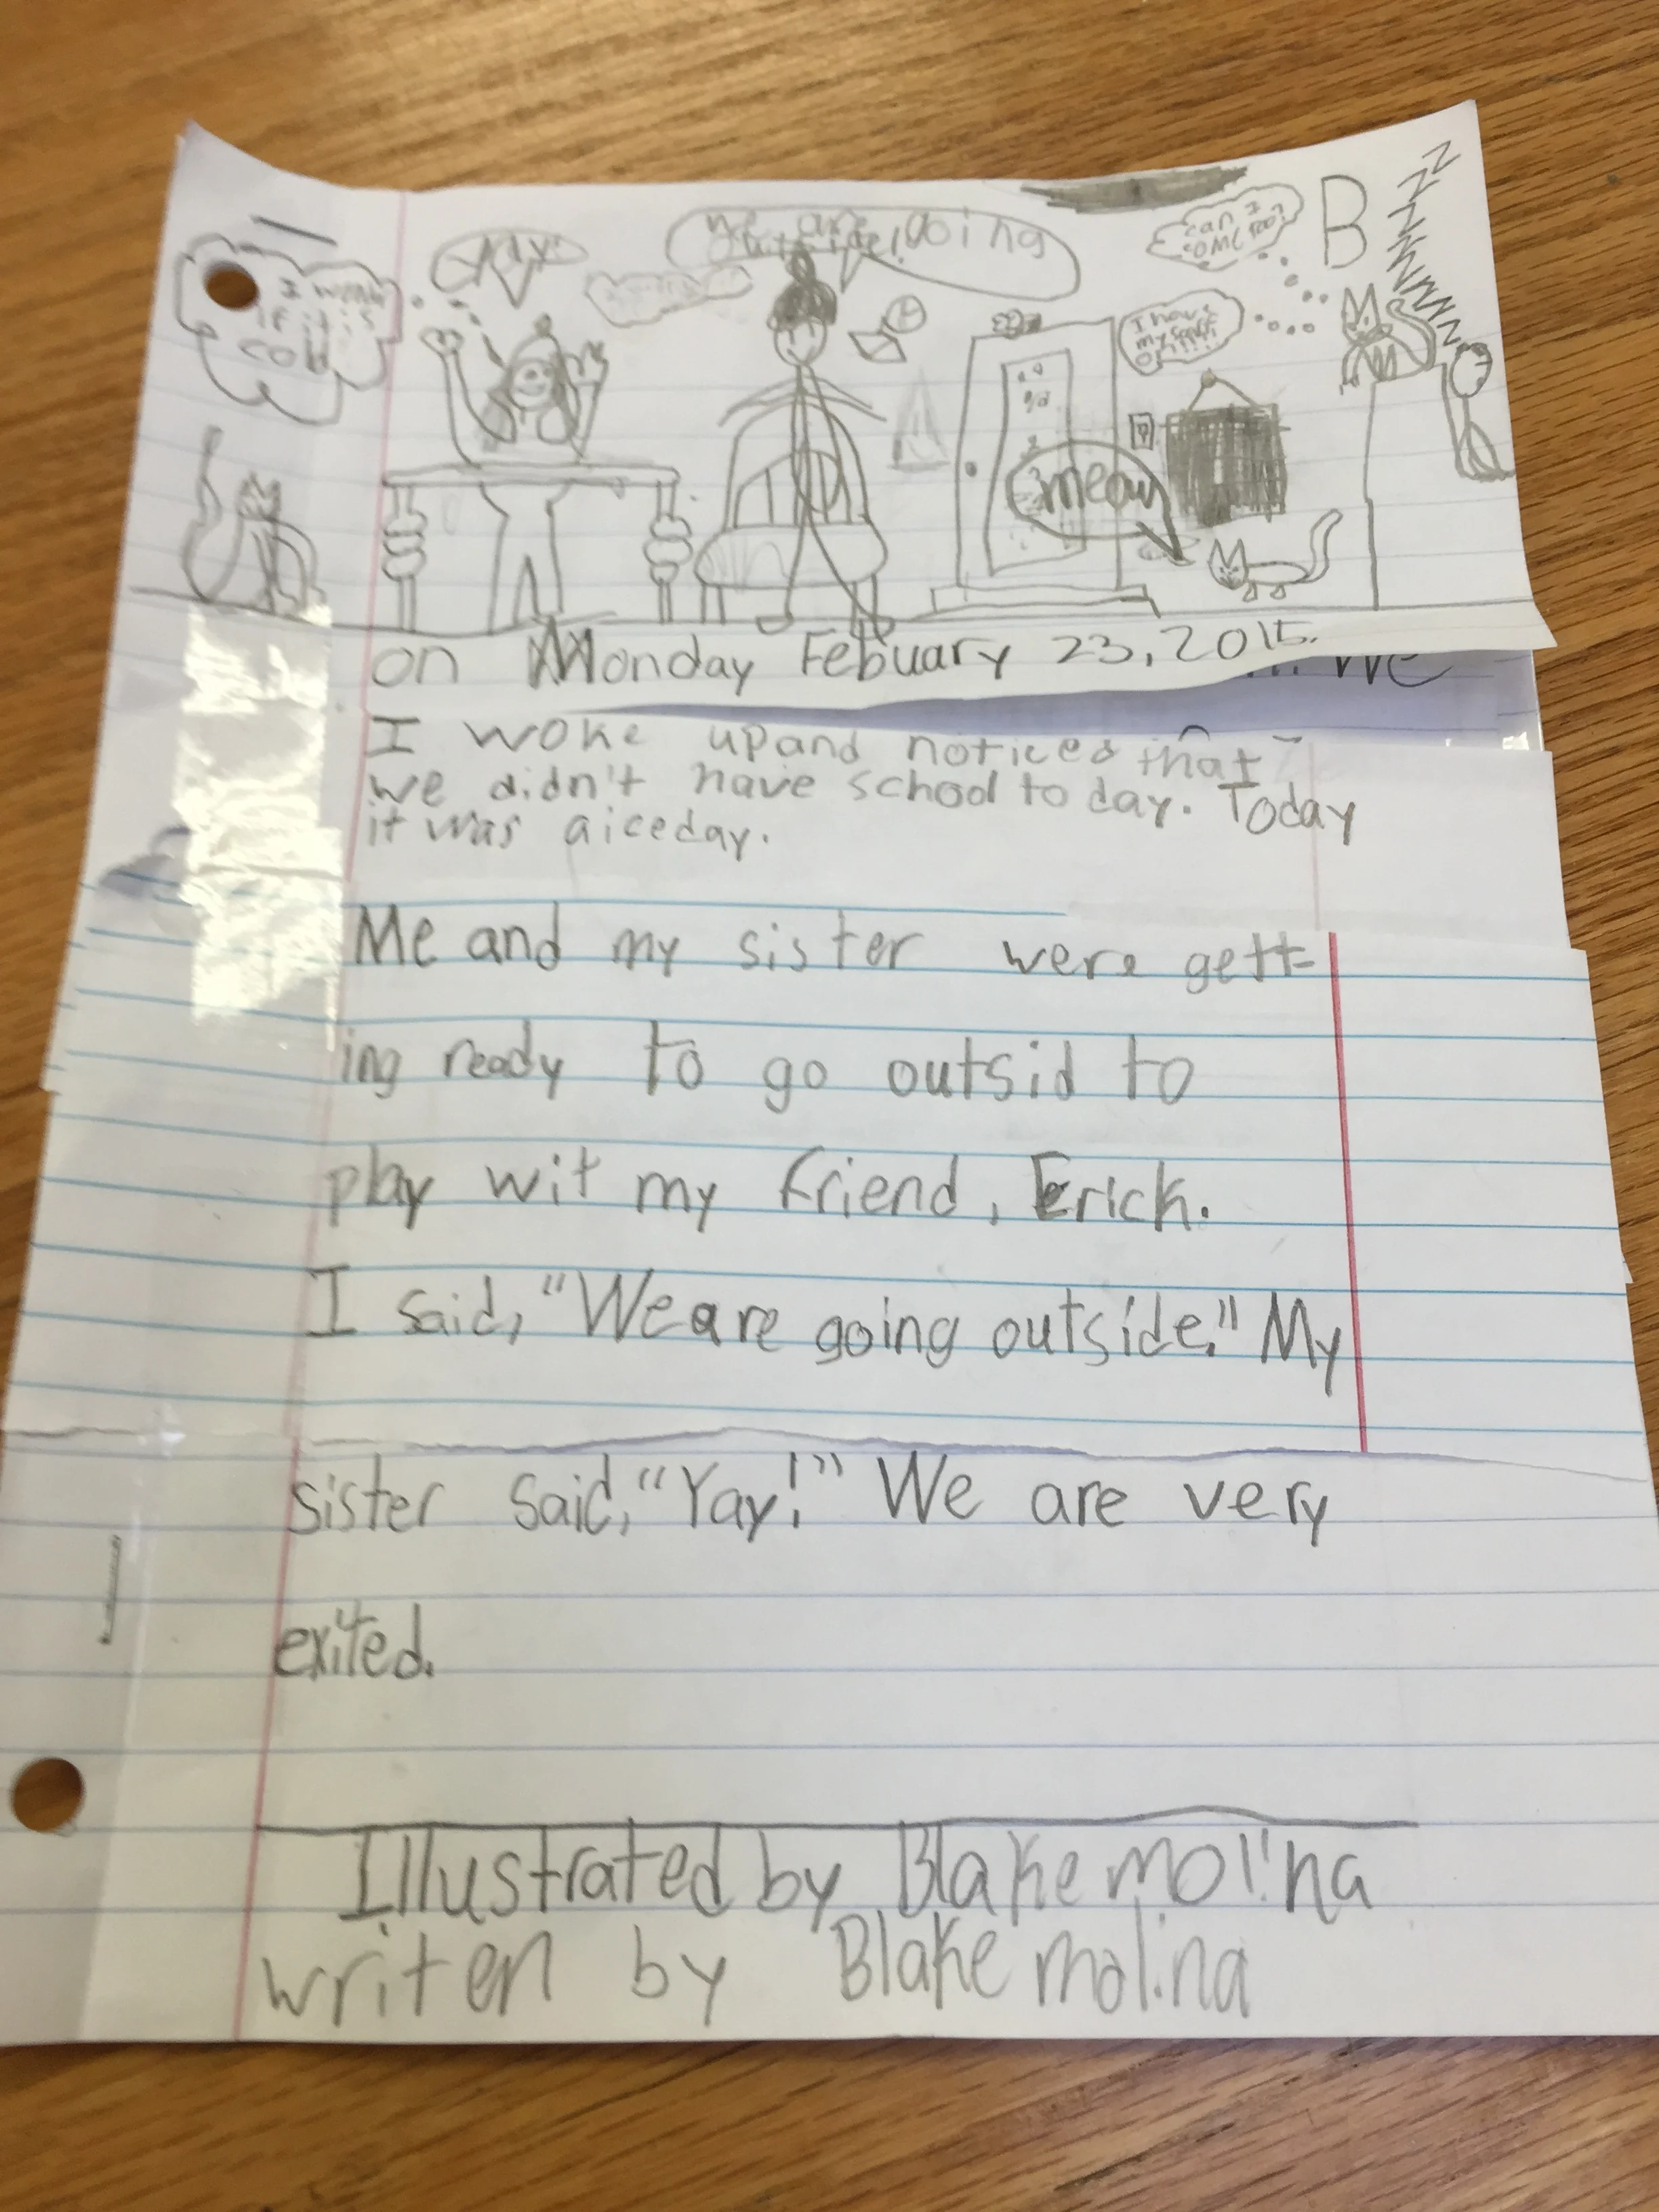 I wonder
if it is
cold
YAY!
We are going
outside!
can I
come too?
B
ZZZZZZZZZZ
I have
my
on!!!!
meow
on Monday Febuary 23, 2015.
We
I woke up and noticed that
we didn't have school to day. Today
it was a iceday.
Me and my sister were gett-
ing ready to go outsid to
play wit my friend, Erick.
I said, "We are going outside." My
sister said, "Yay!" We are very
exited.
Illustrated by Blake molina
writen by Blake molina